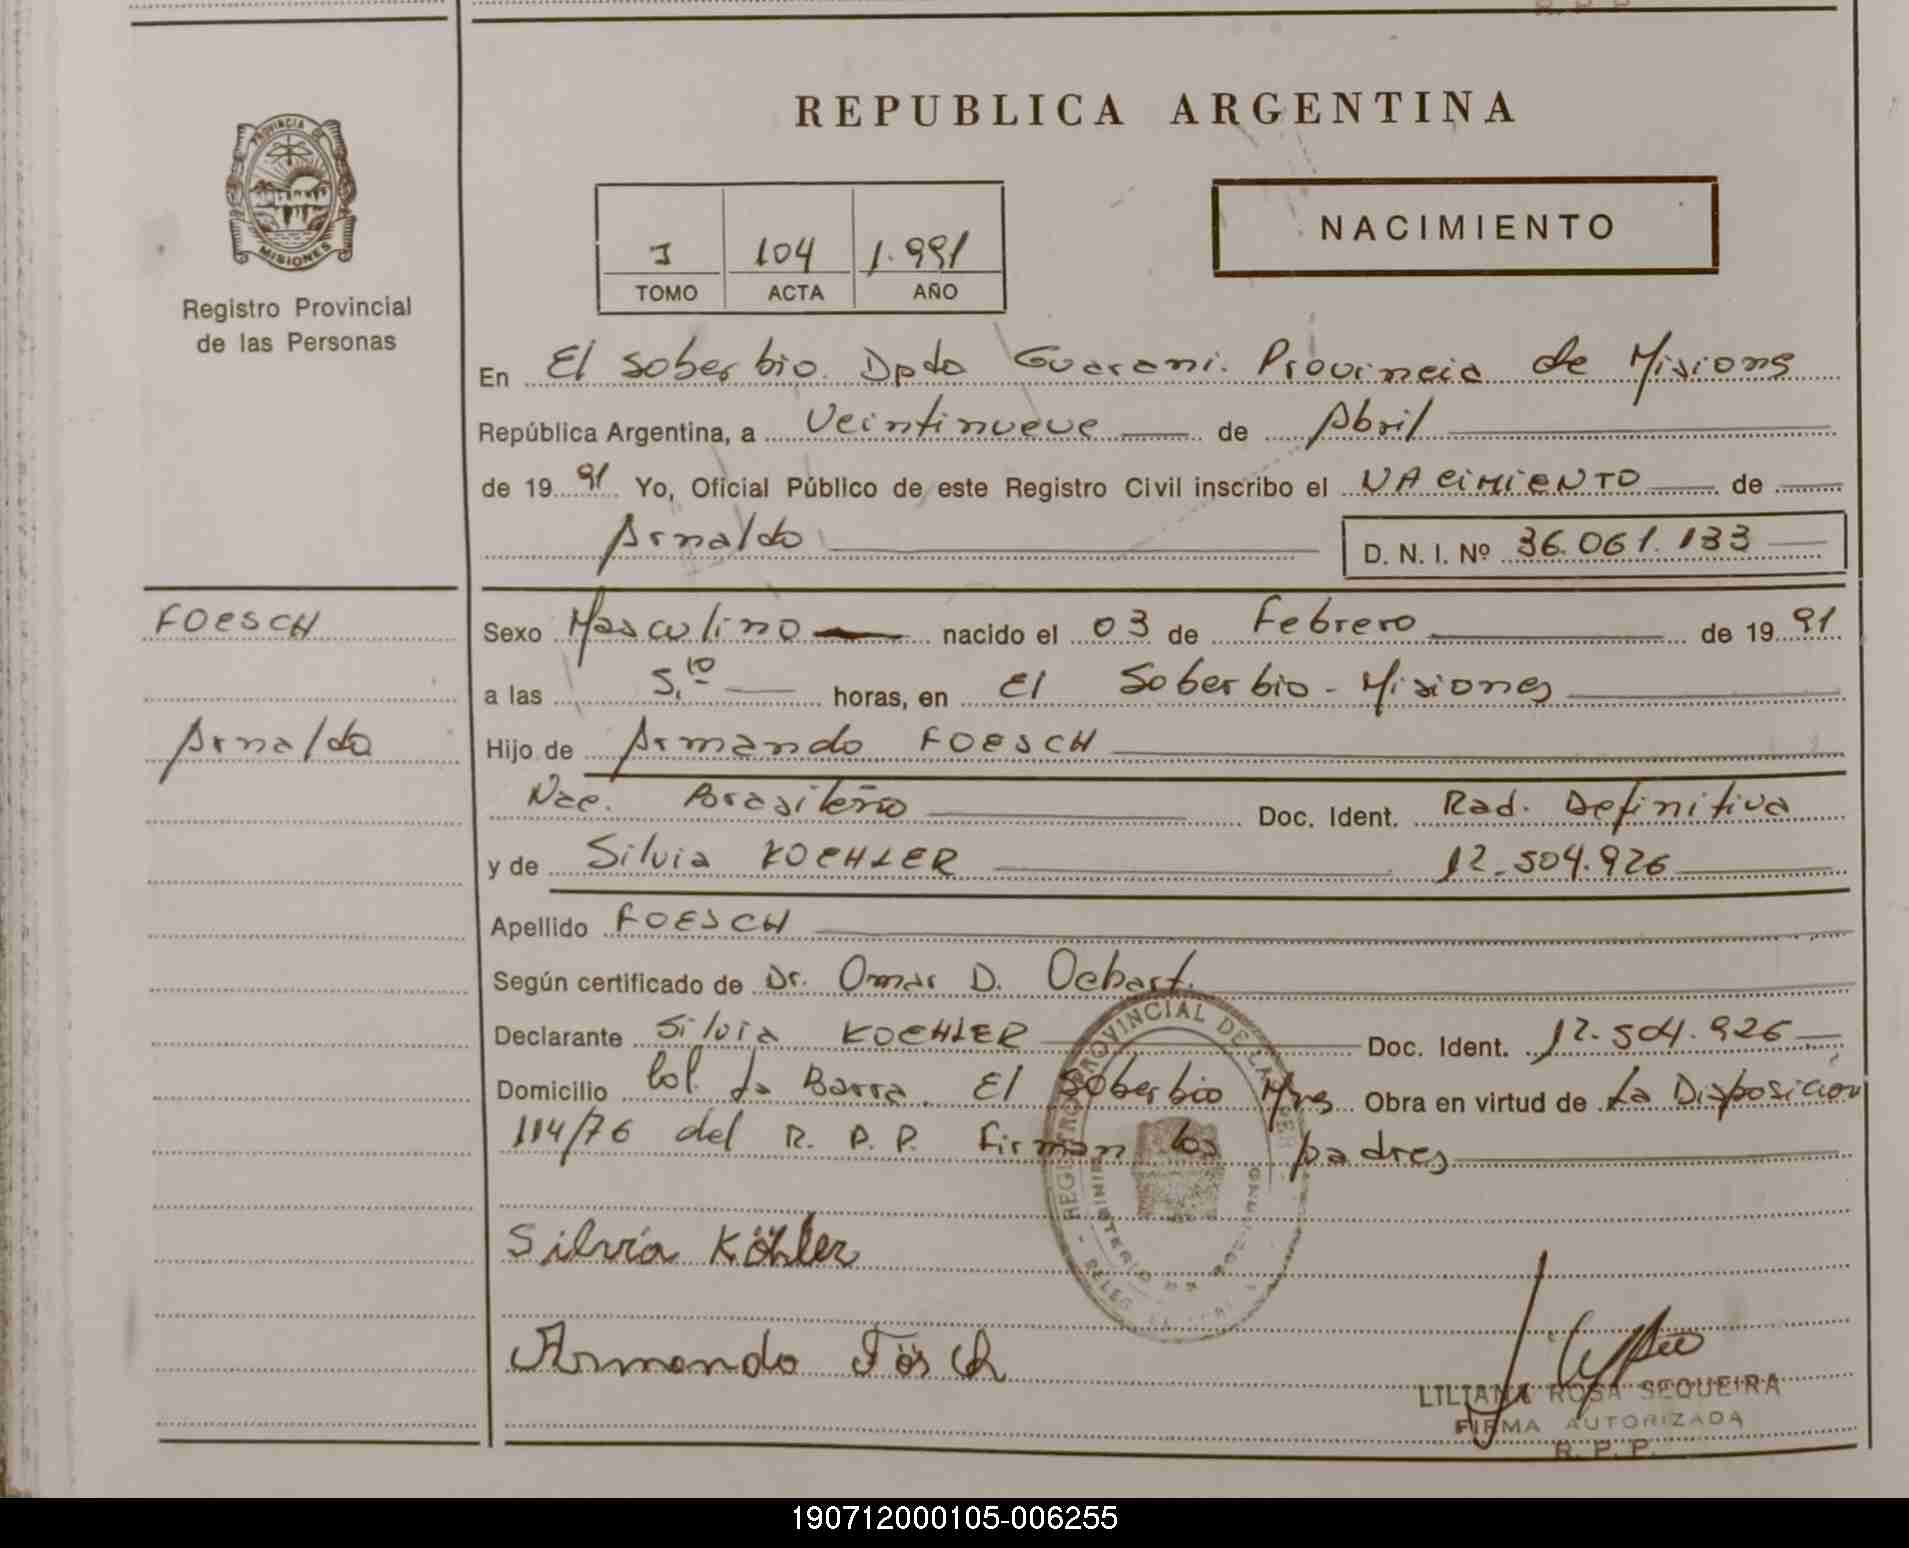 REPUBLICA ARGENTINA
PROVINCIA DE
MISIONES
Registro Provincial
de las Personas
NACIMIENTO
I 104 1.991
TOMO ACTA AÑO
En El Soberbio. Dpto Guarani. Provincia de Misiones
República Argentina, a Veintinueve de Abril
de 19 91 Yo, Oficial Público de este Registro Civil inscribo el NACIMIENTO de
Arnaldo D. N. I. Nº 36.061.133
FOESCH
Arnaldo
Sexo Masculino nacido el 03 de Febrero de 19 91
a las 5,10 horas, en El Soberbio - Misiones
Hijo de Armando FOESCH
Nac. Brasileño Doc. Ident. Rad. Definitiva
y de Silvia KOEHLER 12.504.926
Apellido FOESCH
Según certificado de Dr. Omar D.
Declarante Silvia KOEHLER Doc. Ident. 12.504.926
Domicilio Col. La Barra. El Soberbio Mnes Obra en virtud de La Disposición
114/76 del R. P. P. Firman los padres
Silvia Köhler
Armando Fösch
LILIANA ROSA SEQUEIRA
FIRMA AUTORIZADA
R. P. P.
190712000105-006255